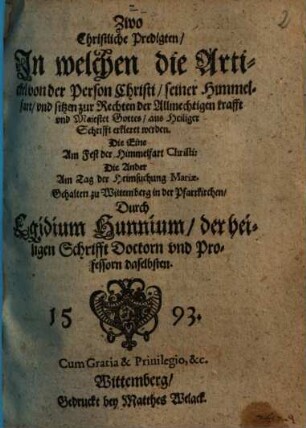 2
Zwo
Christliche Predigten/
In welchen die Arti-
ckel von der Person Christi/ seiner Himmel-
fart/ vnd sitzen zur Rechten der Allmechtigen krafft
vnd Maiestet Gottes/ aus Heiliger
Schrifft erkleret werden.
Die Eine
Am Fest der Himmelfart Christi:
Die Ander
Am Tag der Heimsuchung Mariæ.
Gehalten zu Wittemberg in der Pfarrkirchen/
Durch
Egidium Hunnium/ der hei-
ligen Schrifft Doctorn vnd Pro-
fessorn daselbsten.
15 93.
Cum Gratia & Priuilegio, &c.
Wittemberg/
Gedruckt bey Matthes Welack.